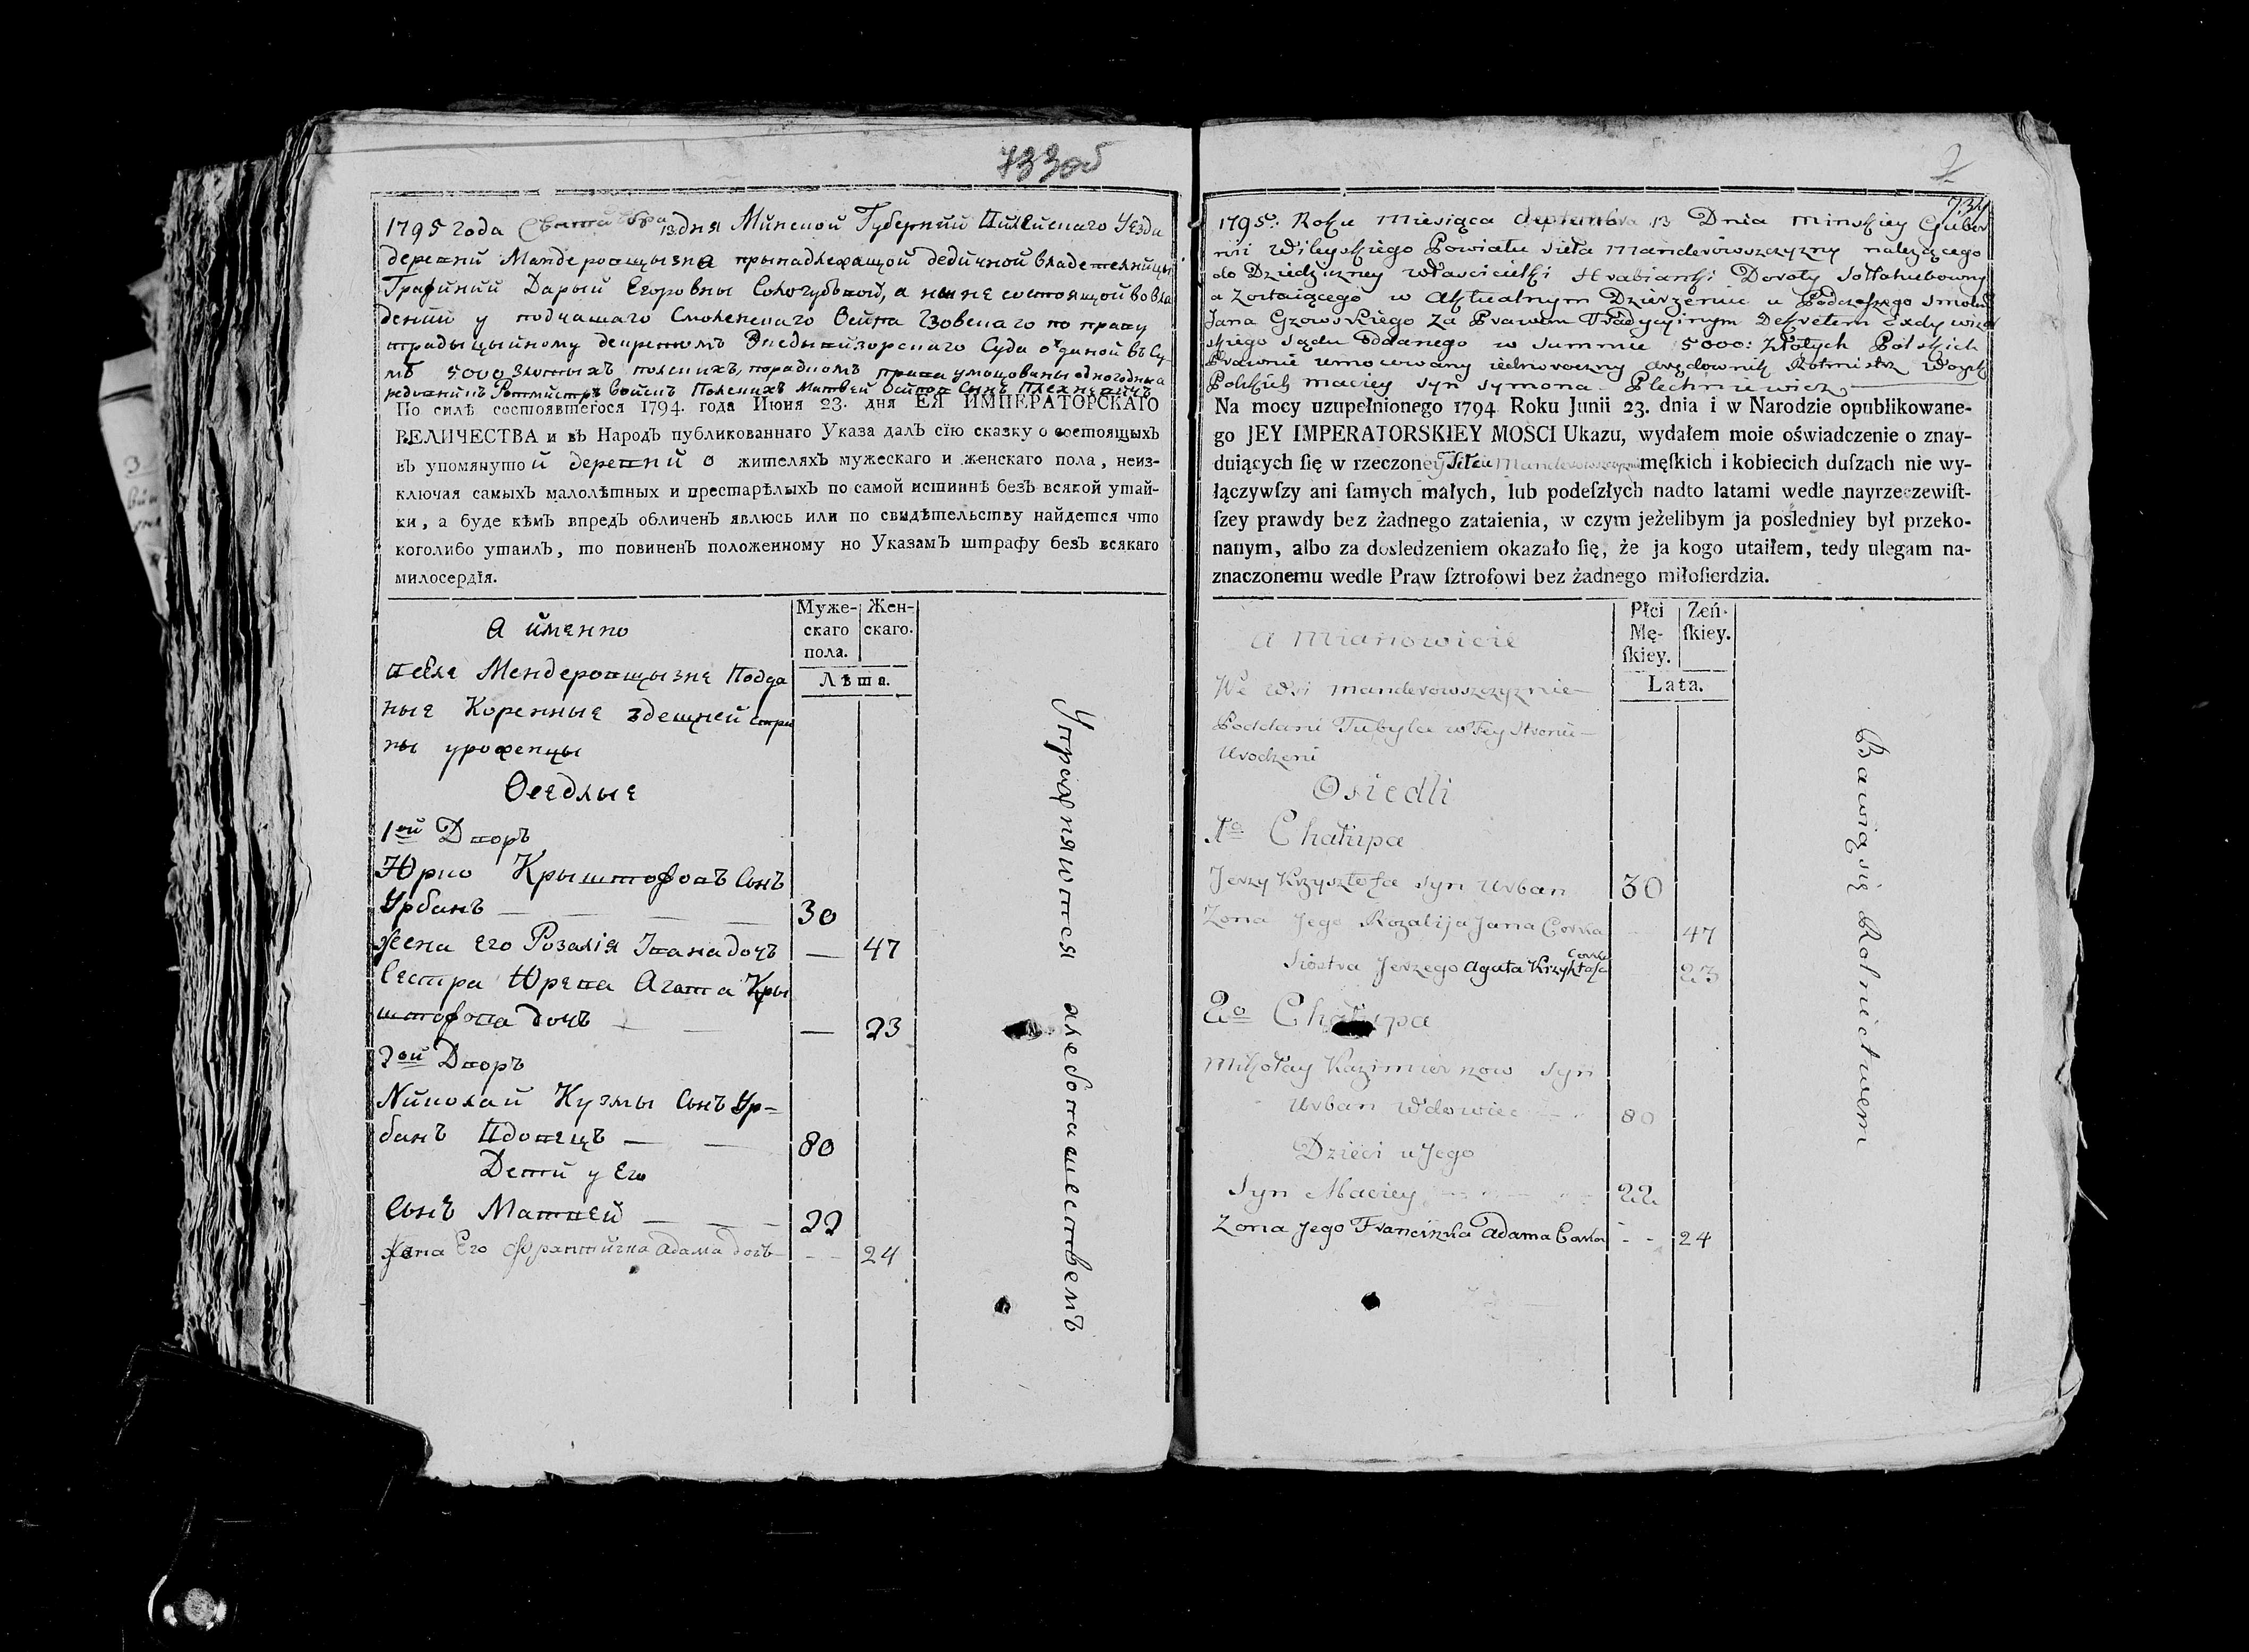 733 об
1795 года Сентября 13 дня Минской Губерний Вилейскаго Уезда
деревни Мандеровщызна прынадлежащой дедичной владетелницы
Графиний Дарьй Егоровны Сологубовой, а ныне состоящой во вла
дений у подчашаго Смоленскаго Гзовскаго по праву
традыцыйному декретомъ Эксдывизорскаго Суда отданой въ Су-
мѣ 5000 злотыхъ полскихъ, порадкомъ права умоцованы одногодны а
рендовникъ Ротмистръ Войскъ Полскихъ Матвей Сынъ Плехневичъ
По силѣ состоявшегося 1794. года Июня 23. дня ЕЯ ИМПЕРАТОРСКАГО
ВЕЛИЧЕСТВА и въ Народъ публикованнаго Указа далъ сїю сказку о состоящыхъ
въ упомянутой деревнй о жителяхъ мужескаго и женскаго пола, неиз-
ключая самыхъ малолѣтныхъ и престарѣлыхъ по самой истиннѣ безъ всякой утай-
ки, а буде кѣмъ впредъ обличенъ явлюсь или по свидѣтельству найдется что
коголибо утаилъ, то повиненъ положенному по Указамъ штрафу безъ всякаго
милосердїя.
А йменно
Муже-
скаго
пола.
Жен-
скаго.
Лѣта.
Мендеровщызне Подда
ные Коренные здешней стра
ны уроженцы
Оседлые
1ой Дворъ
Юрко Крыштофовъ Сынъ
Урбанъ — 30
Жена Его Розалія Івана дочъ — 47
Сестра Юрека Агата Кры
штофова дочъ — 23
2ой Дворъ
Николай Кузмы Сынъ Ур=
банъ Вдовецъ — 80
Детй у Его
Сынъ Матвей — 22
Жена Его Адама дочъ — 24
Упражняются хлебопашествемъ
2
734
1795. Roku Miesiąca Septembra 13 Dnia Minskiey Guber
nii Wileyskiego Powiatu sieła Manderowszczyzny należącego
do Dziedziczney Właścicielki Hrabianki Doroty Sołłohubowny
a zostaiącego w Aktualnym Dzierżeniu u Podczaszego Smoleń
Jana Gzowskiego za Prawem Tradycyinym Dekretem Exdywizor
skiego Sądu oddanego w Summie 5000: Złotych Polskich
Prawnie umocowany iednoroczny Arędownik Rotmistrz Woysk
Polskich Maciey syn Symona Plechniewicz
Na mocy uzupełnionego 1794 Roku Junii 23. dnia i w Narodzie opublikowane-
go JEY IMPERATORSKIEY MOSCI Ukazu, wydałem moie oświadczenie o znay-
duiących ſię w rzeczoney Siele Manderowszczyznie męſkich i kobiecich duſzach nie wy-
łączywſzy ani ſamych małych, lub podeſzłych nadto latami wedle nayrzeczewiſt-
ſzey prawdy bez żadnego zataienia, w czym jeżelibym ja posledniey był przeko-
nanym, albo za dosledzeniem okazało ſię, że ja kogo utaiłem, tedy ulegam na-
znaczonemu wedle Praw ſztrofowi bez żadnego miłoſierdzia.
A Mianowicie
Płci
Mę-
ſkiey.
Zeń-
ſkiey.
Lata.
We Wsi Manderowszczyznie
Poddani Tubylce w Tey Stronie
Urodzeni
Osiedli
1o Chałupa
Jerzy Krzysztofa syn Urban 30
Zona Jego Rozalija Jana Corka 47
Siostra Jerzego Agata Krzysztofa Corka 23
2o Chałupa
Mikołay Kazimierzow syn
Urban Wdowiec 80
Dzieci u Jego
Syn Maciey 22
Zona Jego Franciszka Adama Corka 24
Bawią się Rolnictwem